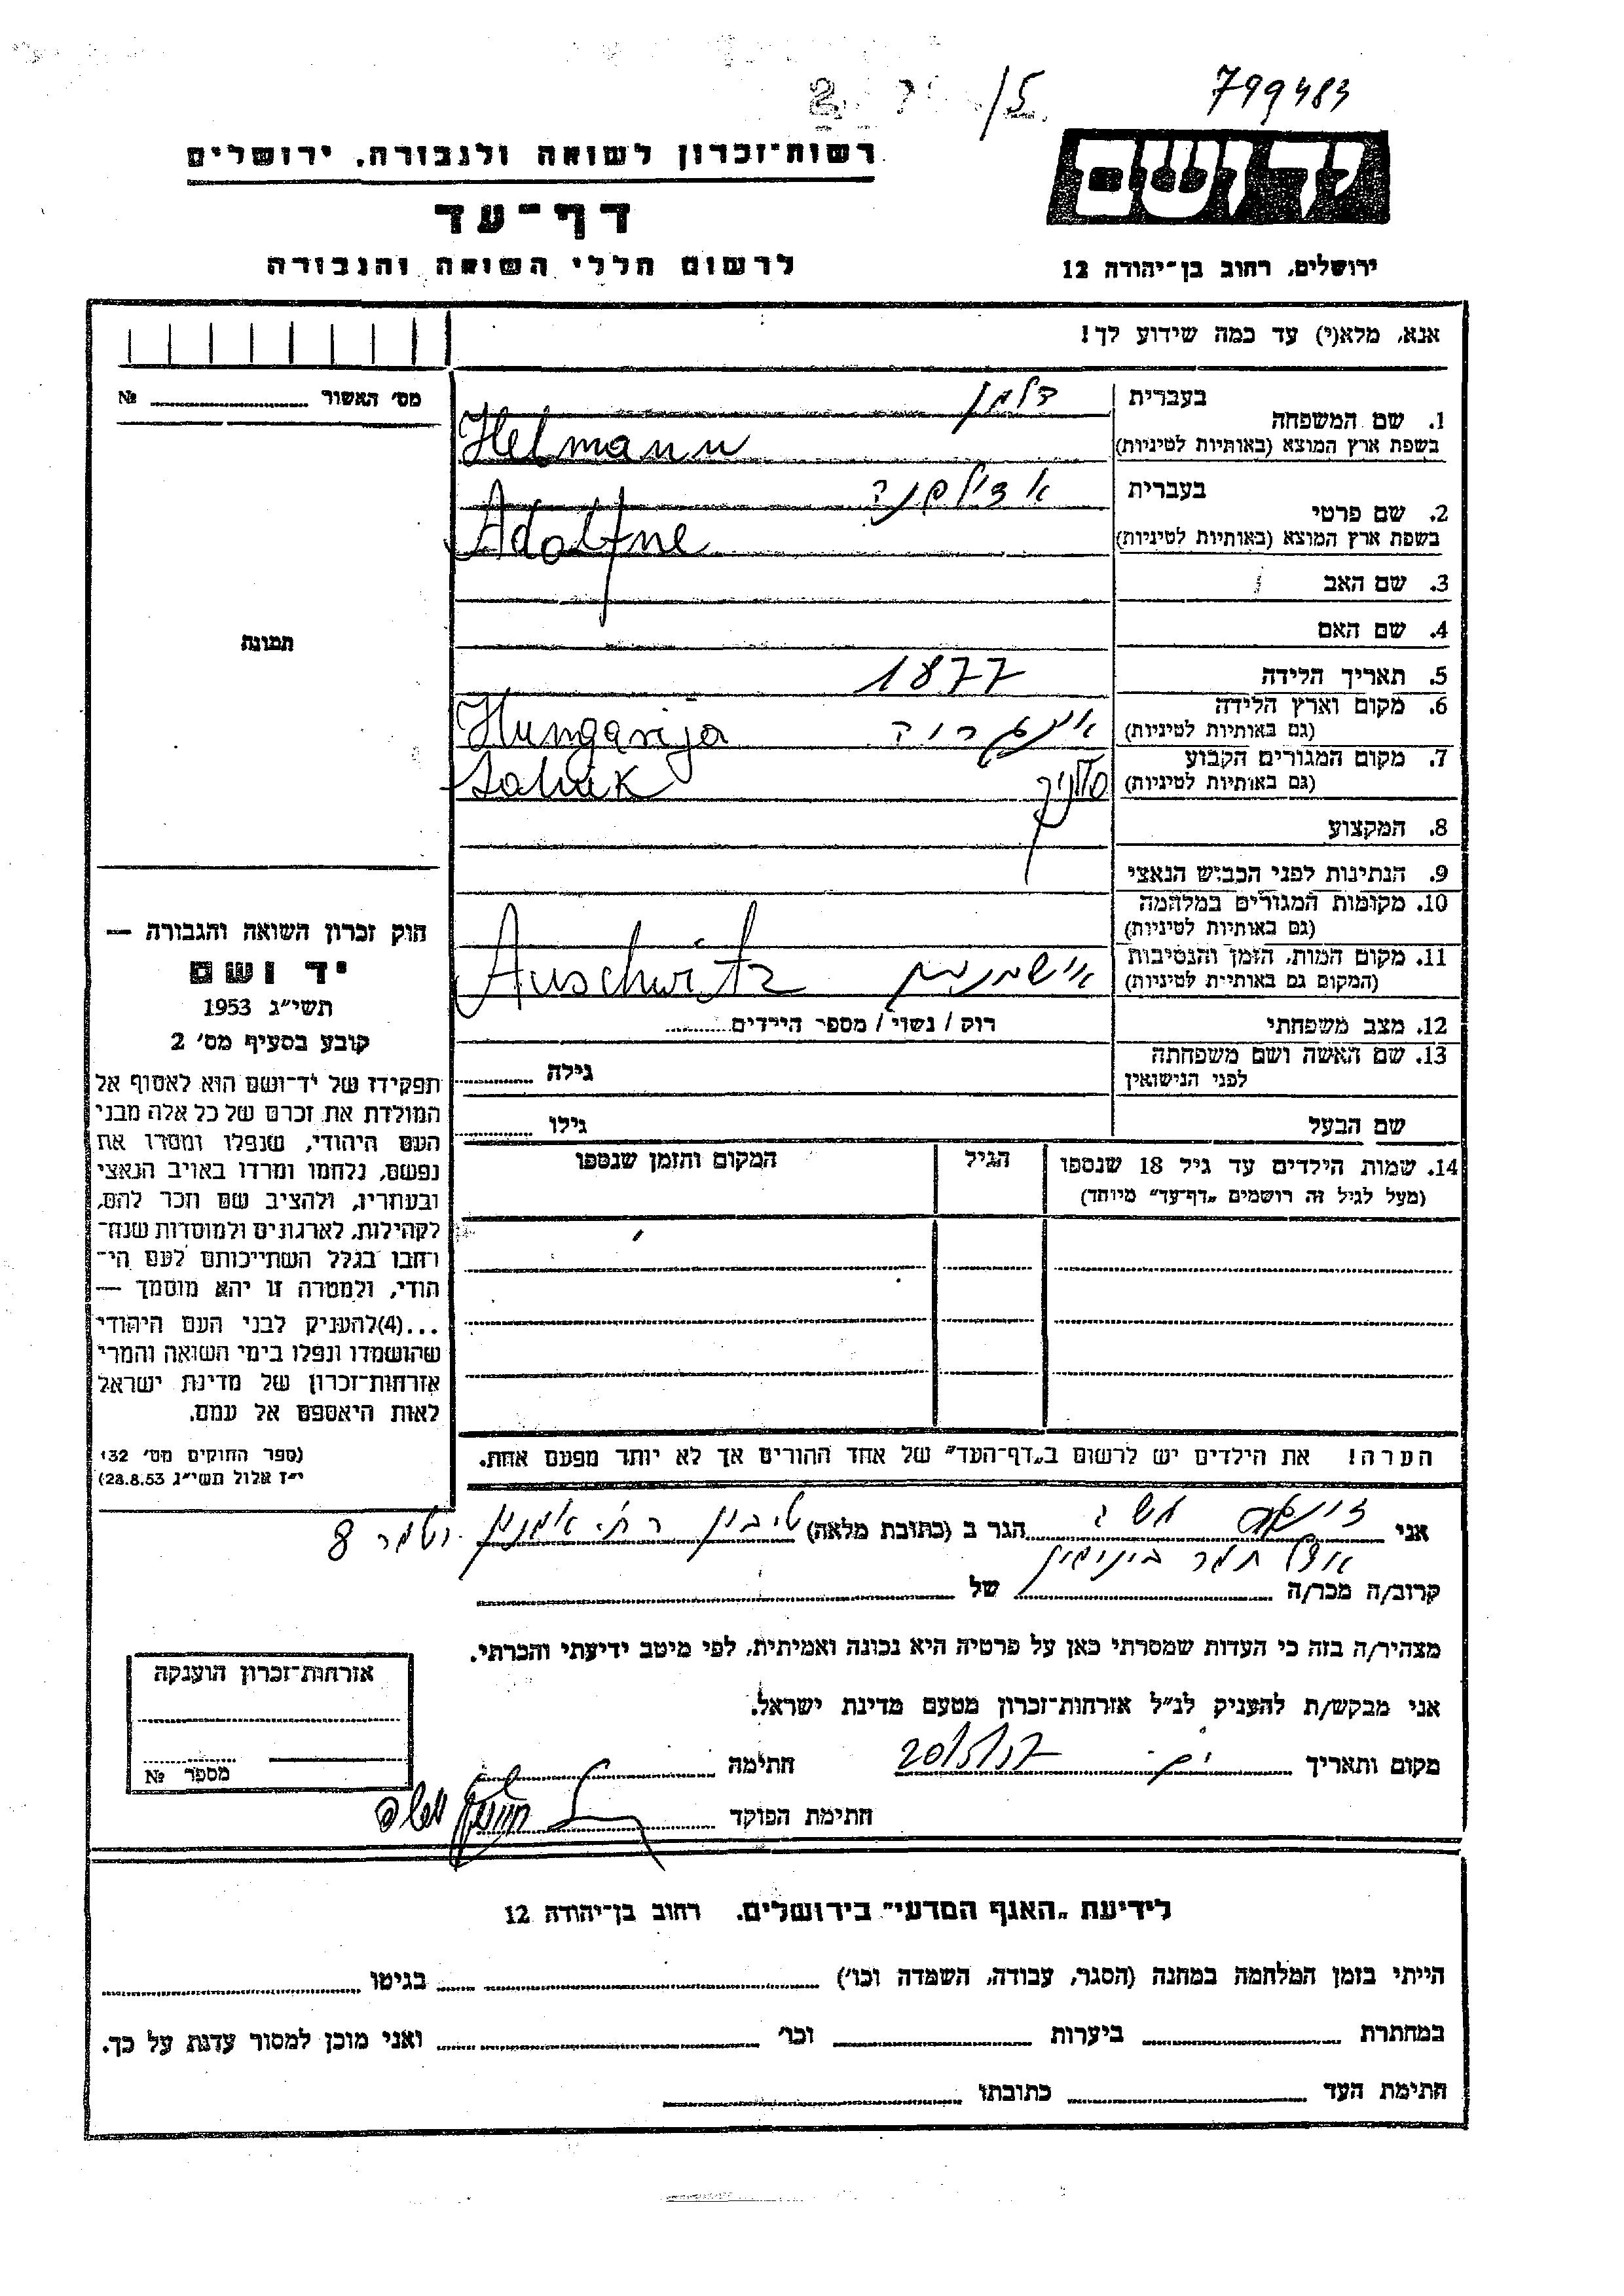 799483
/5
יד ושם
רשות־זכרון לשואה ולגבורה, ירושלים
דף־עד
לרשום חללי השואה והגבורה
ירושלים, רחוב בן־יהודה 12
אנא, מלא(י) עד כמה שידוע לך!
מס׳ האשור № 
1. שם המשפחה
בעברית הלמן
בשפת ארץ המוצא (באותיות לטיניות) Helmann
2. שם פרטי
בעברית אדולפנה
בשפת ארץ המוצא (באותיות לטיניות) Adolfne
3. שם האב
4. שם האם
תמונה
5. תאריך הלידה 1877
6. מקום וארץ הלידה
(גם באותיות לטיניות) Hungarija
7. מקום המגורים הקבוע
(גם באותיות לטיניות)
8. המקצוע
9. הנתינות לפני הכביש הנאצי
10. מקומות המגורים במלחמה
(גם באותיות לטיניות)
11. מקום המות, הזמן והנסיבות
(המקום גם באותיית לטיניות) Auschwitz
12. מצב משפחתי רוק / נשוי / מספר הילדים
13. שם האשה ושם משפחתה
לפני הנישואין
גילה
שם הבעל גילו
14. שמות הילדים עד גיל 18 שנספו
(מעל לגיל זה רושמים „דף־עד” מיוחד)
הגיל
המקום והזמן שנספו
חוק זכרון השואה והגבורה —
יד ושם
תשי״ג 1953
קובע בסעיף מס׳ 2
תפקידו של יד־ושם הוא לאסוף אל
המולדת את זכרם של כל אלה מבני
העם היהודי, שנפלו ומסרו את
נפשם, נלחמו ומרדו באויב הנאצי
ובעוזריו, ולהציב שם וזכר להם,
לקהילות, לארגונים ולמוסדות שנח־
רחבו בגלל השתייכותם לעם הי־
הודי, ולמטרה זו יהא מוסמך —
...(4)להעניק לבני העם היהודי
שהושמדו ונפלו בימי השואה והמרי
אזרחות־זכרון של מדינת ישראל
לאות היאספם אל עמם.
(ספר החוקים מס׳ 132
י״ז אלול תשי״ג 28.8.53)
הערה! את הילדים יש לרשום ב„דף־העד” של אחד ההורים אך לא יותר מפעם אחת.
אני הגר ב (כתובת מלאה) 8
קרוב/ה מכר/ה של
מצהיר/ה בזה כי העדות שמסרתי כאן על פרטיה היא נכונה ואמיתית, לפי מיטב ידיעתי והכרתי.
אני מבקש/ת להעניק לנ״ל אזרחות־זכרון מטעם מדינת ישראל.
מקום ותאריך חתימה
חתימת הפוקד
אזרחות־זכרון הוענקה
מספר №
לידיעת „האגף המדעי” בירושלים, רחוב בן־יהודה 12
הייתי בזמן המלחמה במחנה (הסגר, עבודה, השמדה וכו׳) בגיטו
במחתרת ביערות וכו׳ ואני מוכן למסור עדות על כך.
חתימת העד כתובתו